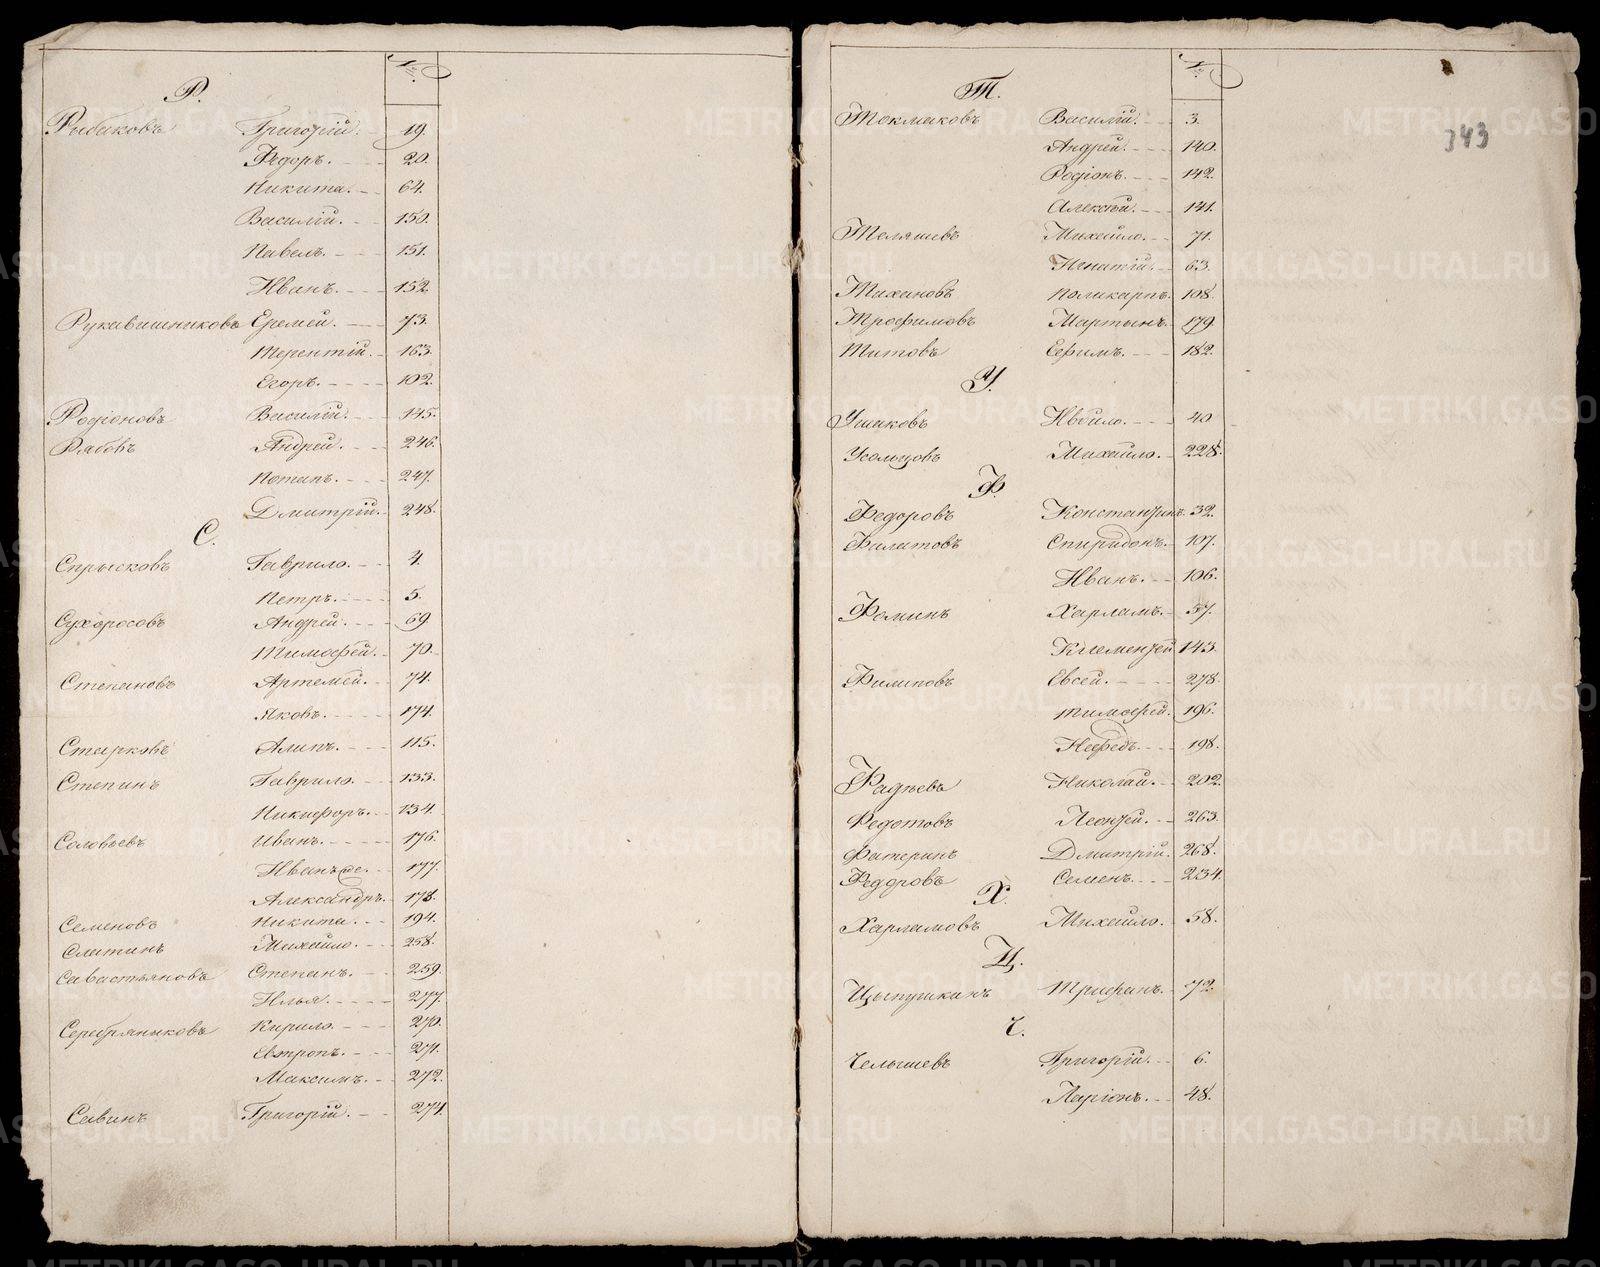 №
Р.
Рыбаковъ Григорій. 19.
Ѳедоръ. 20.
Никита. 64.
Василій. 150.
Павелъ. 151.
Иванъ. 152.
Рукавишниковъ Еремей. 73.
Терентій. 163.
Егоръ. 102.
Родіоновъ Василій. 145.
Рябовъ Андрей. 246.
Потапъ. 247.
Дмитрій. 248.
С.
Спрысковъ Гаврило. 4.
Петръ. 5.
Сухоросовъ Андрей. 69.
Тимофей. 70.
Степановъ Артемей. 74.
Яковъ. 174.
Старковъ Алипъ. 115.
Степинъ Гаврило. 133.
Никифоръ. 134.
Соловьевъ Иванъ. 176.
Иванъ же. 177.
Александръ. 178.
Семеновъ Никита. 194.
Слатинъ Михайло. 258.
Савастьяновъ Степанъ. 259.
Илья. 277.
Серебряниковъ Кирило. 270.
Евтропъ. 271.
Максимъ. 272.
Савинъ Григорій. 274.
№
Т.
Токмаковъ Василій. 3.
343
Андрей. 140.
Родіонъ. 142.
Алексѣй. 141.
Теляшевъ Михайло. 71.
Игнатій. 63.
Тихановъ Поликарпъ. 108.
Трофимовъ Мартынъ. 179.
Титовъ Ефимъ. 182.
У.
Ушаковъ 40
Усольцовъ Михайло. 228.
Ф.
Федоровъ Константинъ. 32.
Филатовъ Спиридонъ. 107.
Иванъ. 106.
Фоминъ Харламъ. 57.
Клементей 143.
Филиповъ Евсей. 278.
Тимофей. 196.
Нефедъ. 198.
Фадѣевъ Николай. 202.
Федотовъ Леонтей. 263.
Фатеринъ Дмитрій. 268.
Федоровъ Семенъ. 234.
Х.
Харламовъ Михайло. 58.
Ц.
Цыпушкинъ Трифанъ. 72.
Ч.
Челышевъ Григорій. 6.
Ларіонъ. 48.
METRIKI.GASO-URAL.RU